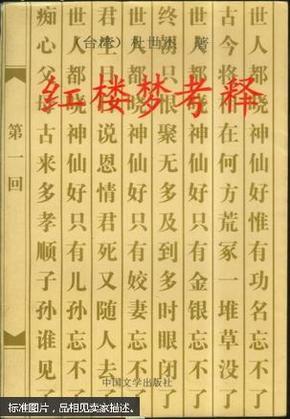 （台湾）杜世杰 著
红楼梦考释
世人都晓神仙好惟有功名忘不了
古今将相在何方荒冢一堆草没了
世人都晓神仙好只有金银忘不了
终朝只恨聚无多及到多时眼闭了
世人都晓神仙好只有姣妻忘不了
君生日日说恩情君死又随人去了
世人都晓神仙好只有儿孙忘不了
痴心父母古来多孝顺子孙谁见了
第一回
中国文学出版社